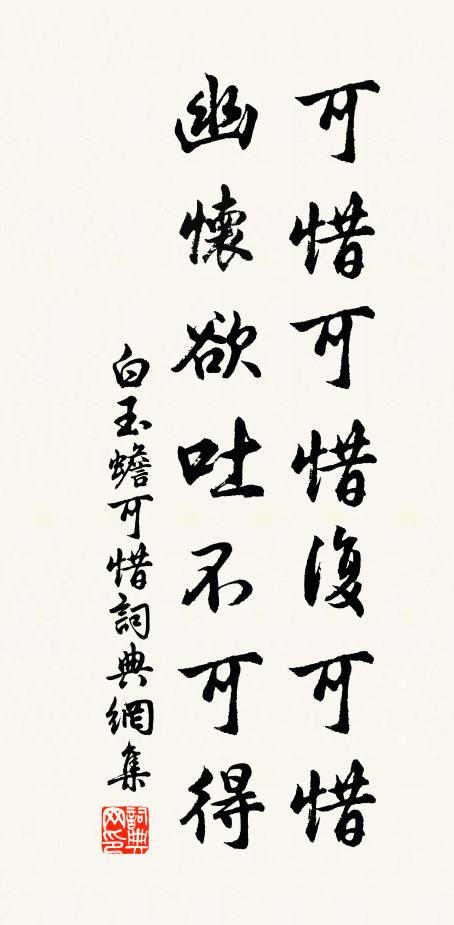 可惜可惜復可惜
幽懷欲吐不可得
白玉蟾可惜詞典網集
詞典网印